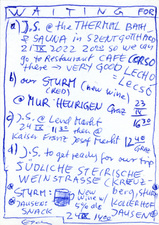 WAITING FOR
a) J.S. @ the THERMAL BATH
& SAUNA in SZENTGOTTHARD
21 IX 2022 20:00 so we can
go to Restaurant CAFE CORSO
there is VERY GOOD LECHO
b) our STURM (NEW WINE) = Lecsó
(RED)
@ MUR HEURIGEN Graz 23 IX
16:30
c) J.S. @ Lend Markt
24 IX 11:30 then @
Kaiser Franz Josef Markt 12:40
GRAZ
d) J.S. to get ready for our trip
SÜDLICHE STEIRISCHE
WEINSTRASSE (KREUZ-
STURM: New wine w/ berg,
@ JAUSEN: 5% alc
SNACK JAUSEN
24 IX 14:00